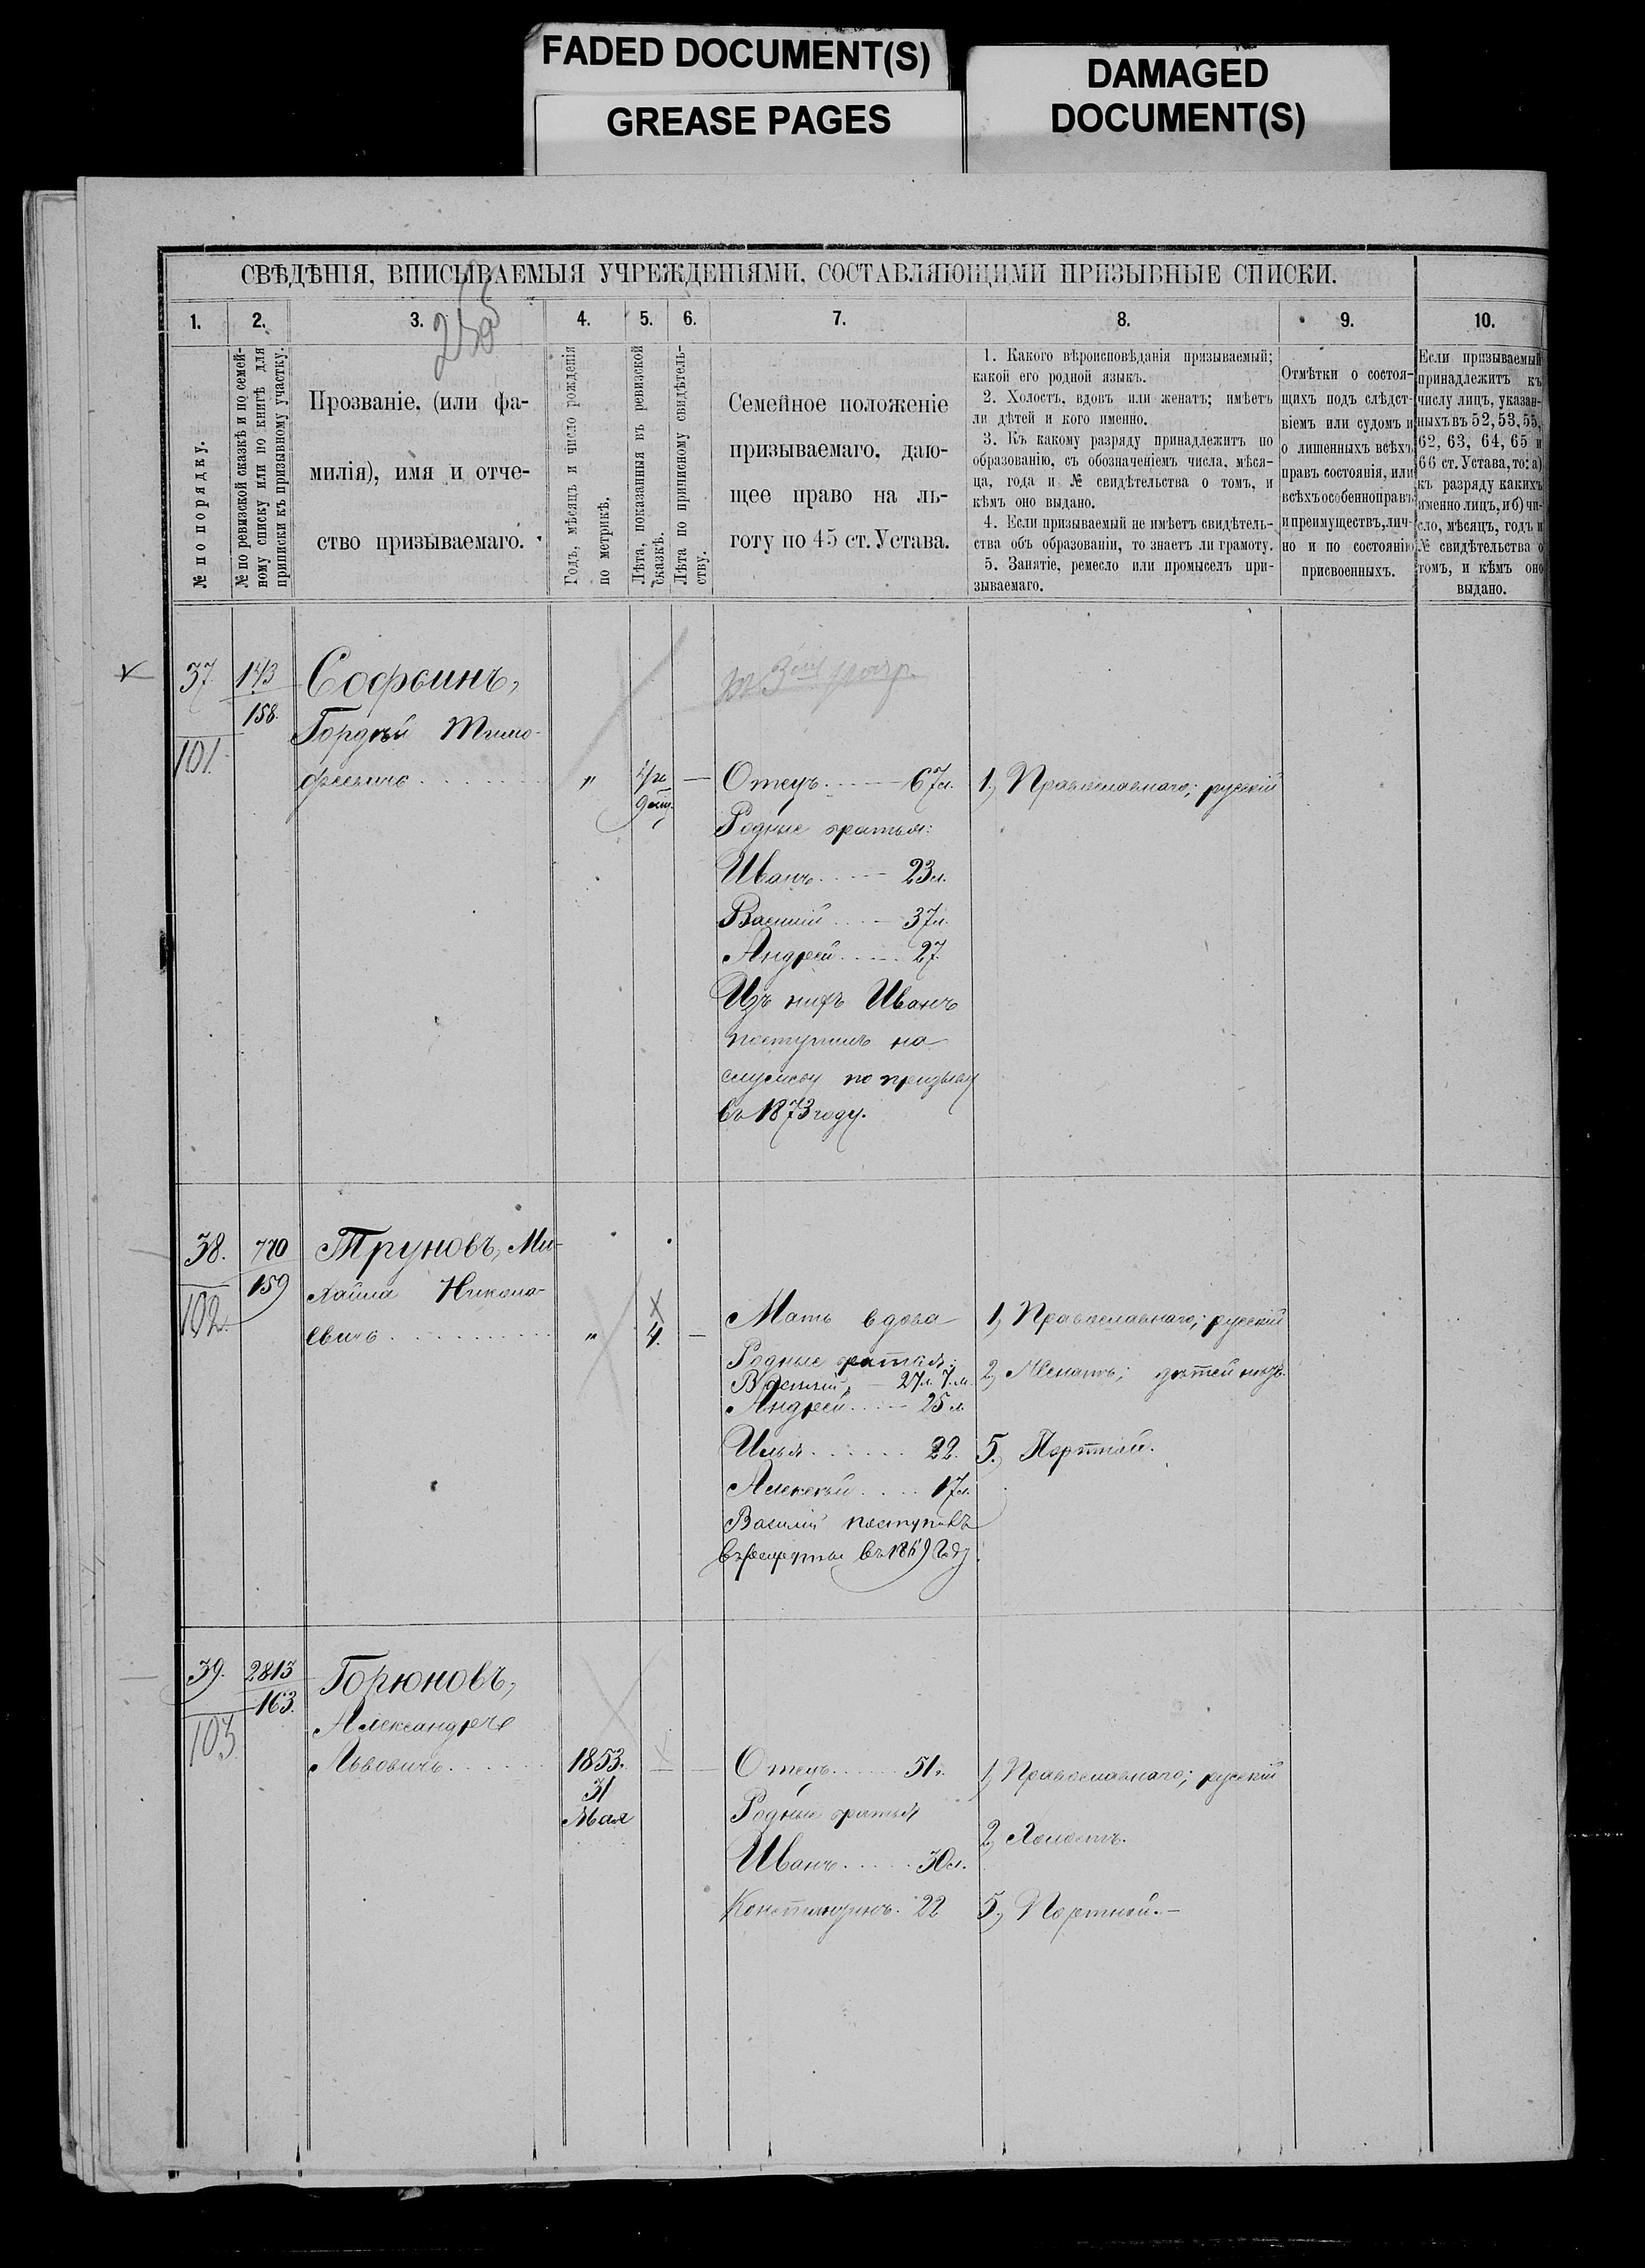 FADED DOCUMENT(S)
GREASE PAGES
DAMAGED
DOCUMENT(S)
СВѢДѢНІЯ, ВПИСЫВАЕМЫЯ УЧРЕЖДЕНІЯМИ, СОСТАВЛЯЮЩИМИ ПРИЗЫВНЫЕ СПИСКИ.
1.
2.
3.
4.
5.
6.
7.
8.
9.
10.
№ по порядку.
№ по ревизской сказкѣ и по семей-
ному списку или по книгѣ для
приписки къ призывному участку.
Прозваніе, (или фа-
милія), имя и отче-
ство призываемаго.
Годъ, мѣсяцъ и число рожденія
по метрикѣ.
Лѣта, показанныя въ ревизской
сказкѣ.
Лѣта по приписному свидѣтель-
ству.
Семейное положеніе
призываемаго, даю-
щее право на ль-
готу по 45 ст. Устава.
1. Какого вѣроисповѣданія призываемый;
какой его родной языкъ.
2. Холостъ, вдовъ или женатъ; имѣетъ
ли дѣтей и кого именно.
3. Къ какому разряду принадлежитъ по
образованію, съ обозначеніемъ числа, мѣся-
ца, года и № свидѣтельства о томъ, и
кѣмъ оно выдано.
4. Если призываемый не имѣетъ свидѣтель-
ства объ образованіи, то знаетъ ли грамоту.
5. Занятіе, ремесло или промыселъ при-
зываемаго.
Отмѣтки о состоя-
щихъ подъ слѣдст-
віемъ или судомъ и
о лишенныхъ всѣхъ
правъ состоянія, или
всѣхъ особенно правъ
и преимуществъ, лич-
но и по состоянію
присвоенныхъ.
Если призываемый
принадлежитъ къ
числу лицъ, указан-
ныхъ въ 52, 53, 55,
62, 63, 64, 65 и
66 ст. Устава, то: а)
къ разряду какихъ
именно лицъ, и б) чи-
сло, мѣсяцъ, годъ и
№ свидѣтельства о
томъ, и кѣмъ оно
выдано.
37.
143
158.
101.
Софьинъ,
Гордѣй Тимо-
феевичъ
"
Отецъ 67 л.
Родные братья:
Иванъ 23 л.
Василій 37 л.
Андрей 27
Изъ нихъ Иванъ
поступилъ на
службу по призыву
въ 1873 году.
1, Православнаго; русскій
38.
770
159
102.
Труновъ, Ми-
хайла Никола-
евичъ
"
4.
Мать вдова
Родные братья:
Василій 27 л. 7 м.
Андрей 25 л.
Илья 22.
Алексѣй 17 л.
Василій поступилъ
въ рекруты въ 1869 году.
1, Православнаго; русскій
2, Женатъ; дѣтей нѣтъ.
5, Портной.
39.
2813
163.
103
Горюновъ,
Александръ
Львовичъ
1853.
31
Мая
Отецъ 51 л.
Родные братья
Иванъ 30 л.
Константинъ 22
1, Православнаго; русскій
2, Холостъ.
5, Портной.